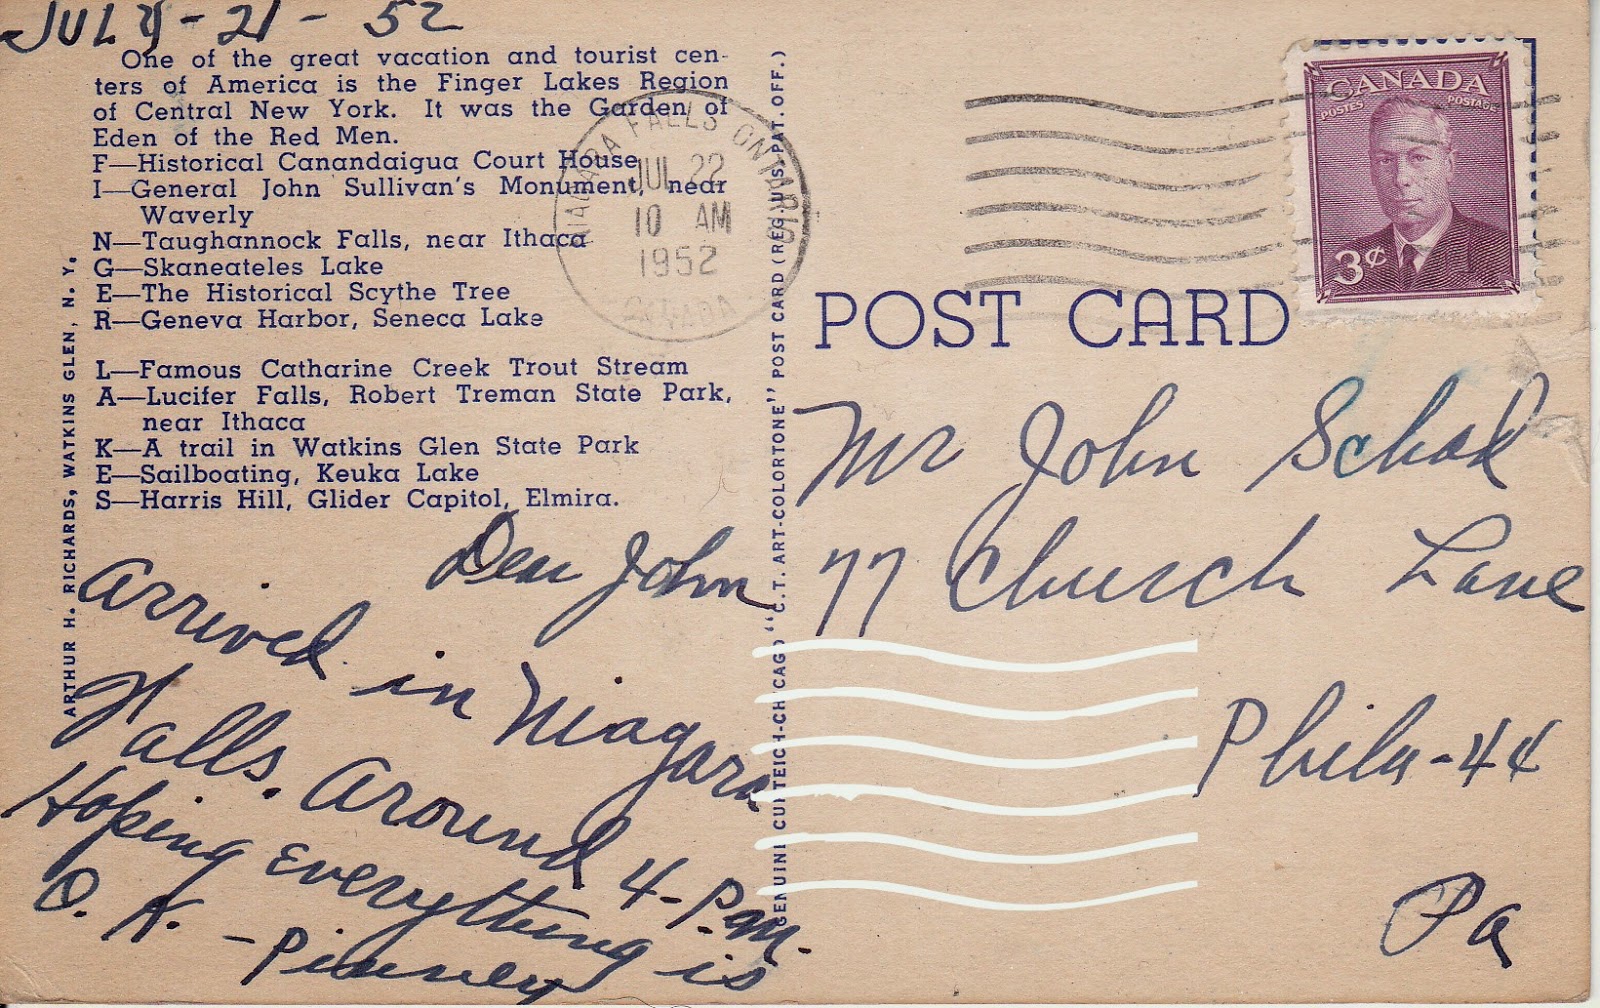 JULY-21-52
One of the great vacation and tourist cen-
ters of America is the Finger Lakes Region
of Central New York. It was the Garden of
Eden of the Red Men.
F—Historical Canandaigua Court House
I—General John Sullivan's Monument, near
Waverly
N—Taughannock Falls, near Ithaca
G—Skaneateles Lake
E—The Historical Scythe Tree
R—Geneva Harbor, Seneca Lake
L—Famous Catharine Creek Trout Stream
A—Lucifer Falls, Robert Treman State Park,
near Ithaca
K—A trail in Watkins Glen State Park
E—Sailboating, Keuka Lake
S—Harris Hill, Glider Capitol, Elmira.
ARTHUR H. RICHARDS, WATKINS GLEN, N. Y.
Dear John
Arrived in Niagara
Falls. Around 4-P.M.
Hoping everything is
O.K. -Pinney
NIAGARA FALLS ONTARIO
JUL 22
10 AM
1952
CANADA
GENUINE CURTEICH-CHICAGO "C. T. ART-COLORTONE" POST CARD (REG. U. S. PAT. OFF.)
POST CARD
CANADA
POSTES POSTAGE
3¢
Mr John Schak
77 Church Lane
Phila-44
Pa